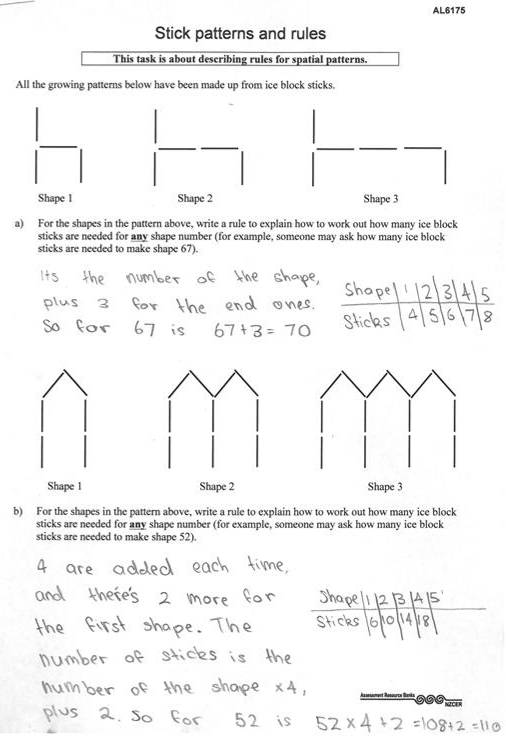 AL6175
Stick patterns and rules
This task is about describing rules for spatial patterns.
All the growing patterns below have been made up from ice block sticks.
Shape 1 Shape 2 Shape 3
a) For the shapes in the pattern above, write a rule to explain how to work out how many ice block
sticks are needed for any shape number (for example, someone may ask how many ice block
sticks are needed to make shape 67).
Its the number of the shape,
plus 3 for the end ones.
So for 67 is 67+3=70
Shape 1 2 3 4 5
Sticks 4 5 6 7 8
Shape 1 Shape 2 Shape 3
b) For the shapes in the pattern above, write a rule to explain how to work out how many ice block
sticks are needed for any shape number (for example, someone may ask how many ice block
sticks are needed to make shape 52).
4 are added each time,
and there's 2 more for
the first shape. The
number of sticks is the
number of the shape x4,
plus 2. So for 52 is 52x4+2=108+2=110
Shape 1 2 3 4 5
Sticks 6 10 14 18
Assessment Resource Banks
NZCER